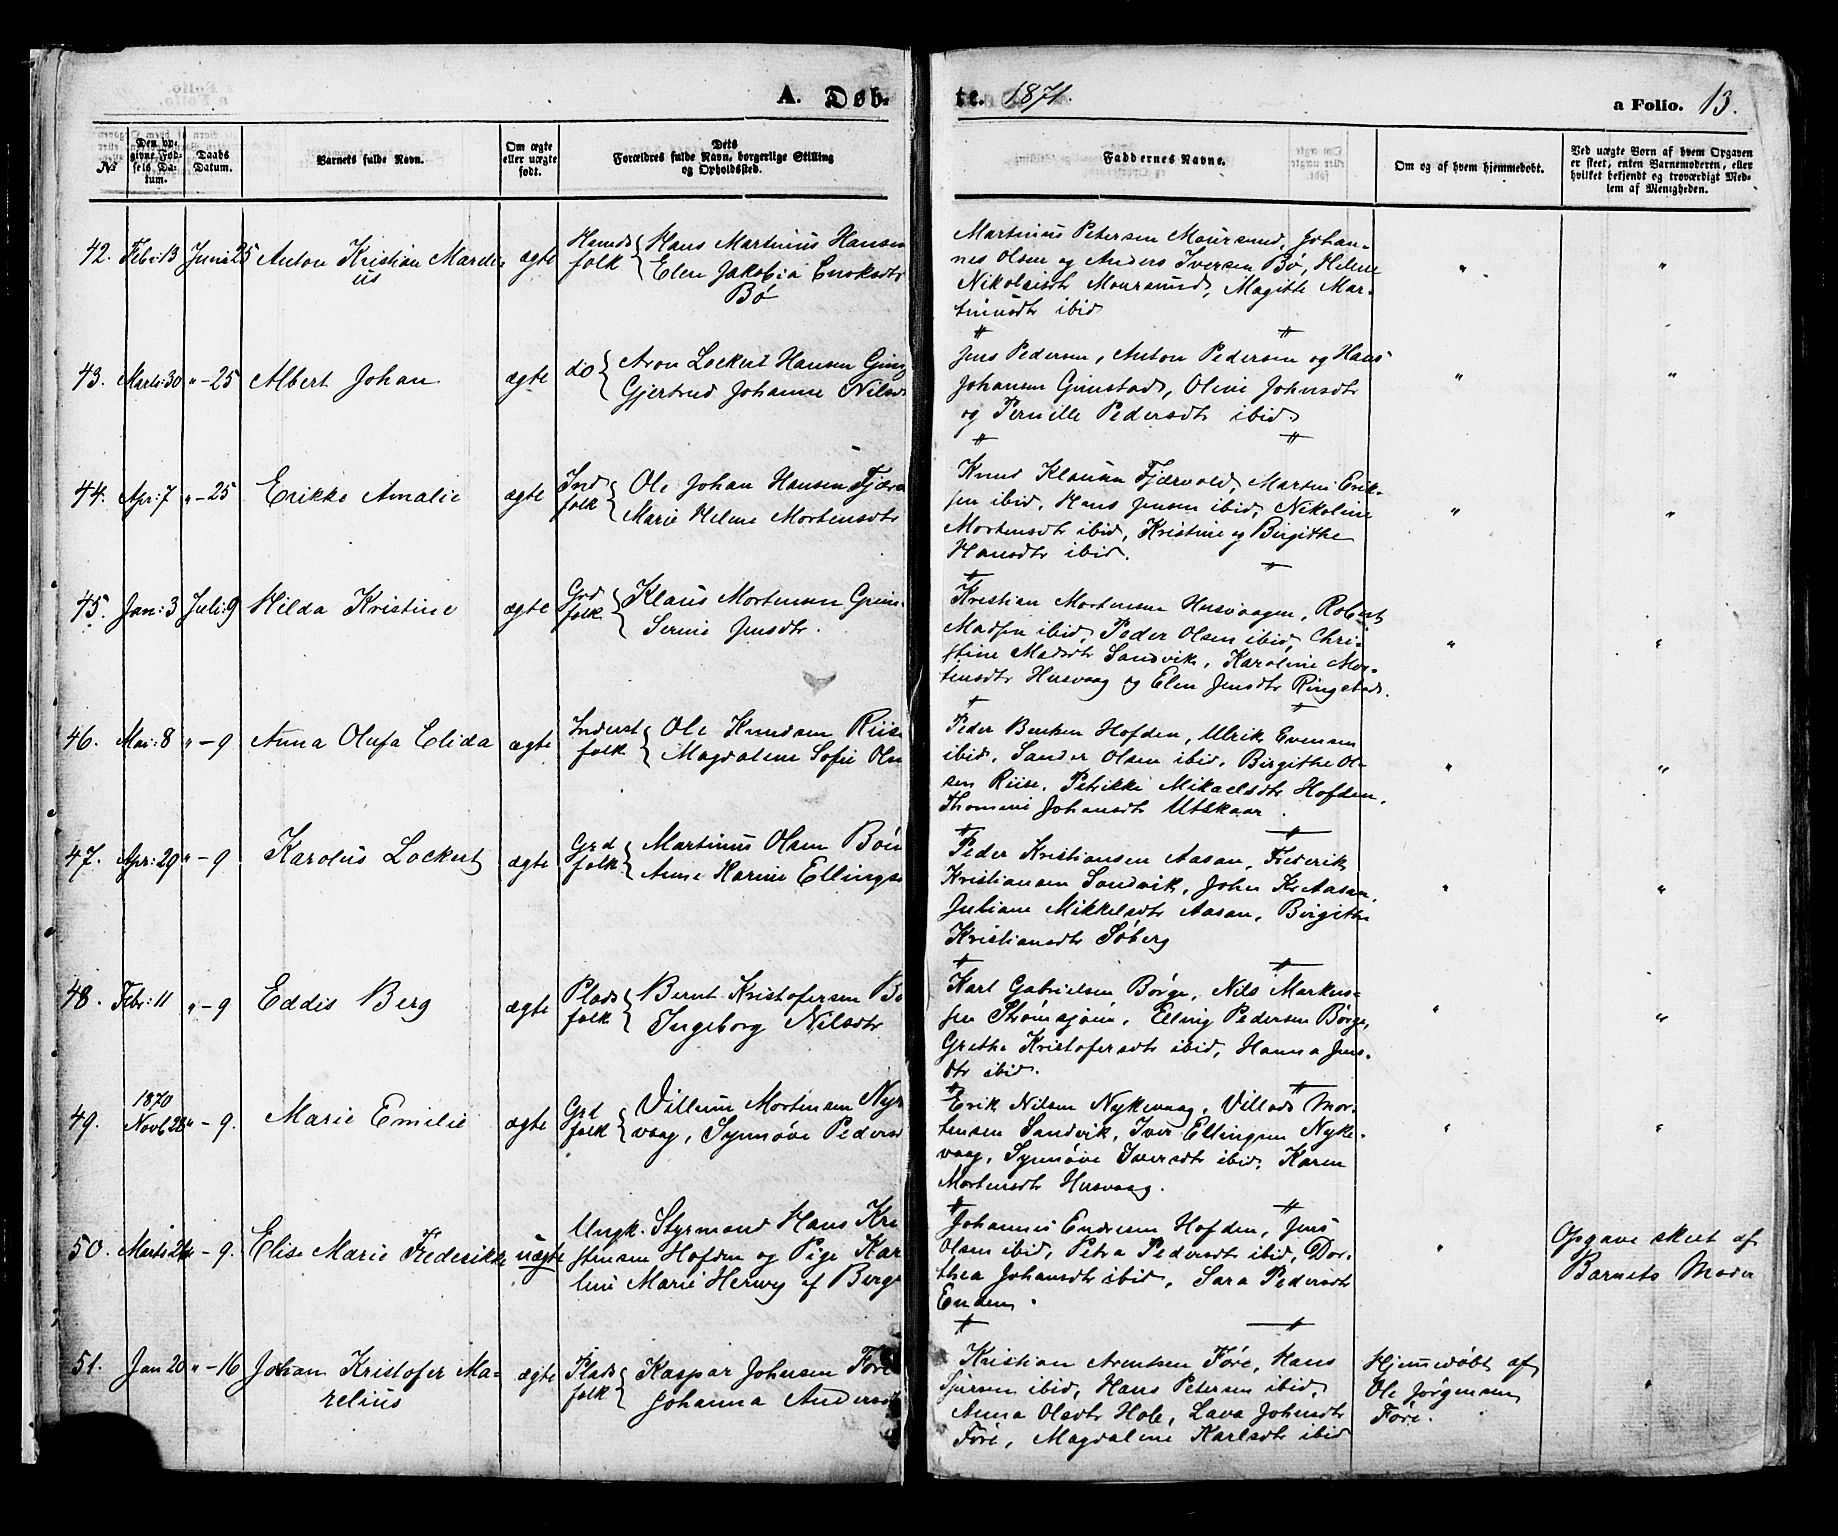 A. Døb-
te. 1871.
a Folio. 13.
№
Den opgivne Fødsels Datum.
Daabs Datum.
Barnets fulde Navn.
Om ægte eller uægte født.
Dets Forældres fulde Navn, borgerlige Stilling og Opholdssted.
Faddernes Navne.
Om og af hvem hjemmedøbt.
Ved uægte Born af hvem Opgaven er skeet, enten Barnemoderen, eller hvilket bekjendt og troværdigt Medlem af Menigheden.
42. Feb: 13 Juni 25 Anton Kristian Mareli-
us
ægte
Hmds
folk
Hans Martinius Hansen
Elen Jakobia Enoksdtr
Bø
Martinius Petersen Maursund, Johan-
nes Olsen og Anders Iversen Bø, Helene
Nikolaisdtr Maursund, Magitte Mar-
tinusdtr ibid
" "
43. Marts: 30 " - 25 Albert Johan ægte do
Aron Lockert Hansen Grims
Gjertrud Johanne Nilsd
Jens Pedersen, Anton Pedersen og Hans
Johansen Grimstad, Oline Johnsdtr
og Pernille Pedersdtr ibid
" "
44. Apr: 7 " - 25 Erikke Amalie ægte
Ind
folk
Ole Johan Hansen Fjærv
Marie Helene Mortensdtr
Knud Klausen Fjærvold, Morten Erik-
sen ibid, Hans Jensen ibid, Nikoline
Mortensdtr ibid, Kristine og Birgithe
Hansdtr ibid.
" "
45. Jan: 3 Juli: 9 Hilda Kristine ægte
Grd
folk
Klaus Mortensen Grim-
Serine Jensdtr.
Kristian Mortensen Husvaagen, Robert
Madsen ibid, Peder Olsen ibid, Chri-
stine Madsdtr Sandvik, Karoline Mor-
tensdtr Husvaag og Elen Jensdtr Ringstad.
" "
46. Mai: 8 " - 9 Anna Olufa Elida ægte
Inderst
folk
Ole Knudsen Riise
Magdalene Sofie Ols
Peder Hofden, Ulrik Evensen
ibid, Sander Olsen ibid, Birgithe Ol-
sen Riise, Petrikke Mikaelsdtr Hofden,
Thomine Johansdtr Utskaar.
" "
47. Apr: 29 " - 9 Karolus Lockert ægte
Grd
folk
Martinus Olsen Bøi
Anne Karine Ellings
Peder Kristiansen Aasan, Frederik
Kristiansen Sandvik, John Kr Aasan,
Juliane Mikkelsdtr Aasan, Birgithe
Kristiansdtr Søberg
" "
48. Febr: 11 " - 9 Eddis Berg ægte
Plads
folk
Bernt Kristofersen Bø
Ingeborg Nilsdtr
Karl Gabrielsen Børge, Nils Markus-
sen Strømsjøen, Elling Pedersen Børge,
Grethe Kristofersdtr ibid, Hanna Jens-
dtr ibid.
" "
1870
49. Novb 28 " - 9. Marie Emilie ægte
Grd
folk
Villum Mortensen Nyk
vaag, Synnøve Pedersd
Erik Nilsen Nykevaag, Villads Mor-
tensen Sandvik, Iver Ellingsen Nyke-
vaag, Synnøve Iversdtr ibid, Karen
Mortensdtr Husvaag.
" "
50. Marts 24 " - 9. Elise Marie Frederikke uægte
Ungk. Styrmand Hans Kri
stensen Hofden og Pige Kar
line Marie Herwig af Berge
Johannes Endresen Hofden, Jens
Olsen ibid, Petra Pedersdtr ibid, Dor-
thea Johansdtr ibid, Sara Pedersdtr
Enden.
Opgave skeet af
Barnets Moder
" "
51. Jan 20 " - 16 Johan Kristofer Ma-
relius
ægte
Plads
folk
Kaspar Johnsen Føre
Johanna Andersd
Kristian Arentsen Føre, Hans
Sjursen ibid, Hans Petersen ibid,
Anna Olsdtr Hole, Lava Johnsdtr
Føre, Magdalene Karlsdtr ibid
Hjemmedøbt af
Ole Jørgensen
Føre.